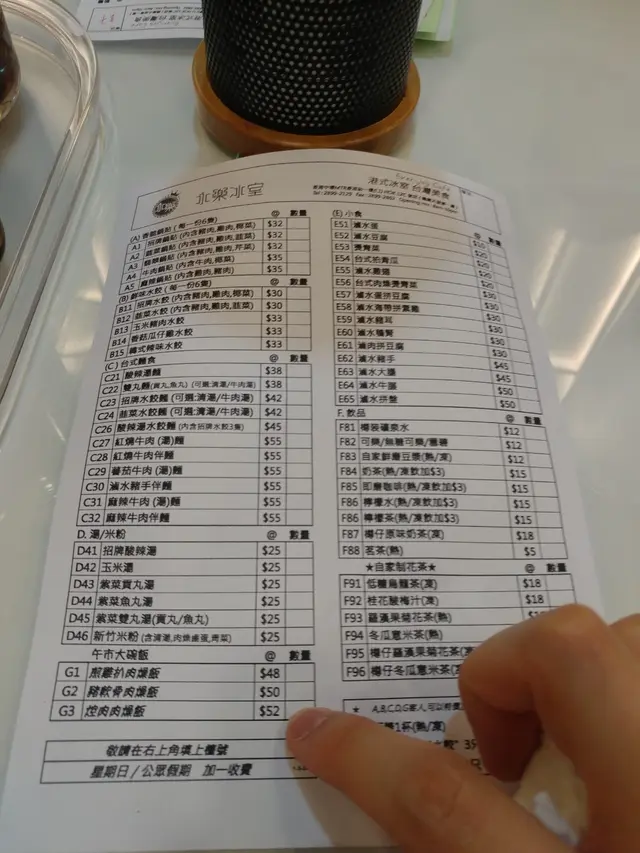 永樂冰室
港式冰室 台灣美食
(A) 香脆鍋貼 (每一份6隻) @ 數量
A1 招牌鍋貼 (內含豬肉,雞肉,椰菜) $32
A2 韮菜鍋貼 (內含豬肉,雞肉,韮菜) $32
A3 翡翠鍋貼 (內含豬肉,雞肉,芹菜) $32
A4 牛肉鍋貼 (內含牛肉,椰菜) $35
A5 麻辣鍋貼 (內含雞肉,豬肉) $35
(B) 鮮味水餃 (每一份6隻) @ 數量
B11 招牌水餃 (內含豬肉,雞肉,椰菜) $30
B12 韮菜水餃 (內含豬肉,雞肉,韮菜) $30
B13 玉米豬肉水餃 $33
B14 香菇瓜仔雞水餃 $33
B15 韓式辣味水餃 $33
(C) 台式麵食 @ 數量
C21 酸辣湯麵 $38
C22 雙丸麵(貢丸,魚丸) (可選:清湯/牛肉湯) $38
C23 招牌水餃麵 (可選:清湯/牛肉湯) $42
C24 韮菜水餃麵 (可選:清湯/牛肉湯) $42
C26 酸辣湯水餃麵 (內含招牌水餃3隻) $45
C27 紅燒牛肉 (湯)麵 $55
C28 紅燒牛肉伴麵 $55
C29 蕃茄牛肉 (湯)麵 $55
C30 滷水豬手伴麵 $55
C31 麻辣牛肉 (湯)麵 $55
C32 麻辣牛肉伴麵 $55
D. 湯/米粉 @ 數量
D41 招牌酸辣湯 $25
D42 玉米湯 $25
D43 紫菜貢丸湯 $25
D44 紫菜魚丸湯 $25
D45 紫菜雙丸湯(貢丸/魚丸) $25
D46 新竹米粉 (含清湯,肉燥滷蛋,青菜) $25
午市大碗飯 @ 數量
G1 煎雞扒肉燥飯 $48
G2 豬軟骨肉燥飯 $50
G3 焢肉肉燥飯 $52
敬請在右上角填上檯號
星期日/公眾假期 加一收費
(E) 小食 @ 數量
E51 滷水蛋
E52 滷水豆腐 $15
E53 燙青菜 $20
E54 台式拍青瓜 $20
E55 滷水雞翅 $20
E56 台式肉燥燙青菜 $20
E57 滷水蛋拼豆腐 $20
E58 滷水海帶拼素雞 $30
E59 滷水豬耳 $30
E60 滷水鴨腎 $30
E61 滷肉拼豆腐 $30
E62 滷水豬手 $30
E63 滷水大腸 $45
E64 滷水牛腱 $45
E65 滷水拼盤 $50
$50
F. 飲品 @ 數量
F81 樽裝礦泉水 $12
F82 可樂/無糖可樂/雪碧 $12
F83 自家鮮磨豆漿(熱/凍) $12
F84 奶茶(熱/凍飲加$3) $15
F85 即磨咖啡(熱/凍飲加$3) $15
F86 檸檬水(熱/凍飲加$3) $15
F86 檸檬茶(熱/凍飲加$3) $15
F87 樽仔原味奶茶(凍) $18
F88 茗茶(熱) $5
★自家制花茶★ @ 數量
F91 低糖烏龍茶(凍) $18
F92 桂花酸梅汁(凍) $18
F93 羅漢果菊花茶(熱)
F94 冬瓜薏米茶(熱)
F95 樽仔羅漢果菊花茶(凍
F96 樽仔冬瓜薏米茶(凍
★ A,B,C,D,G客人,可以特價
1杯(熱/凍)